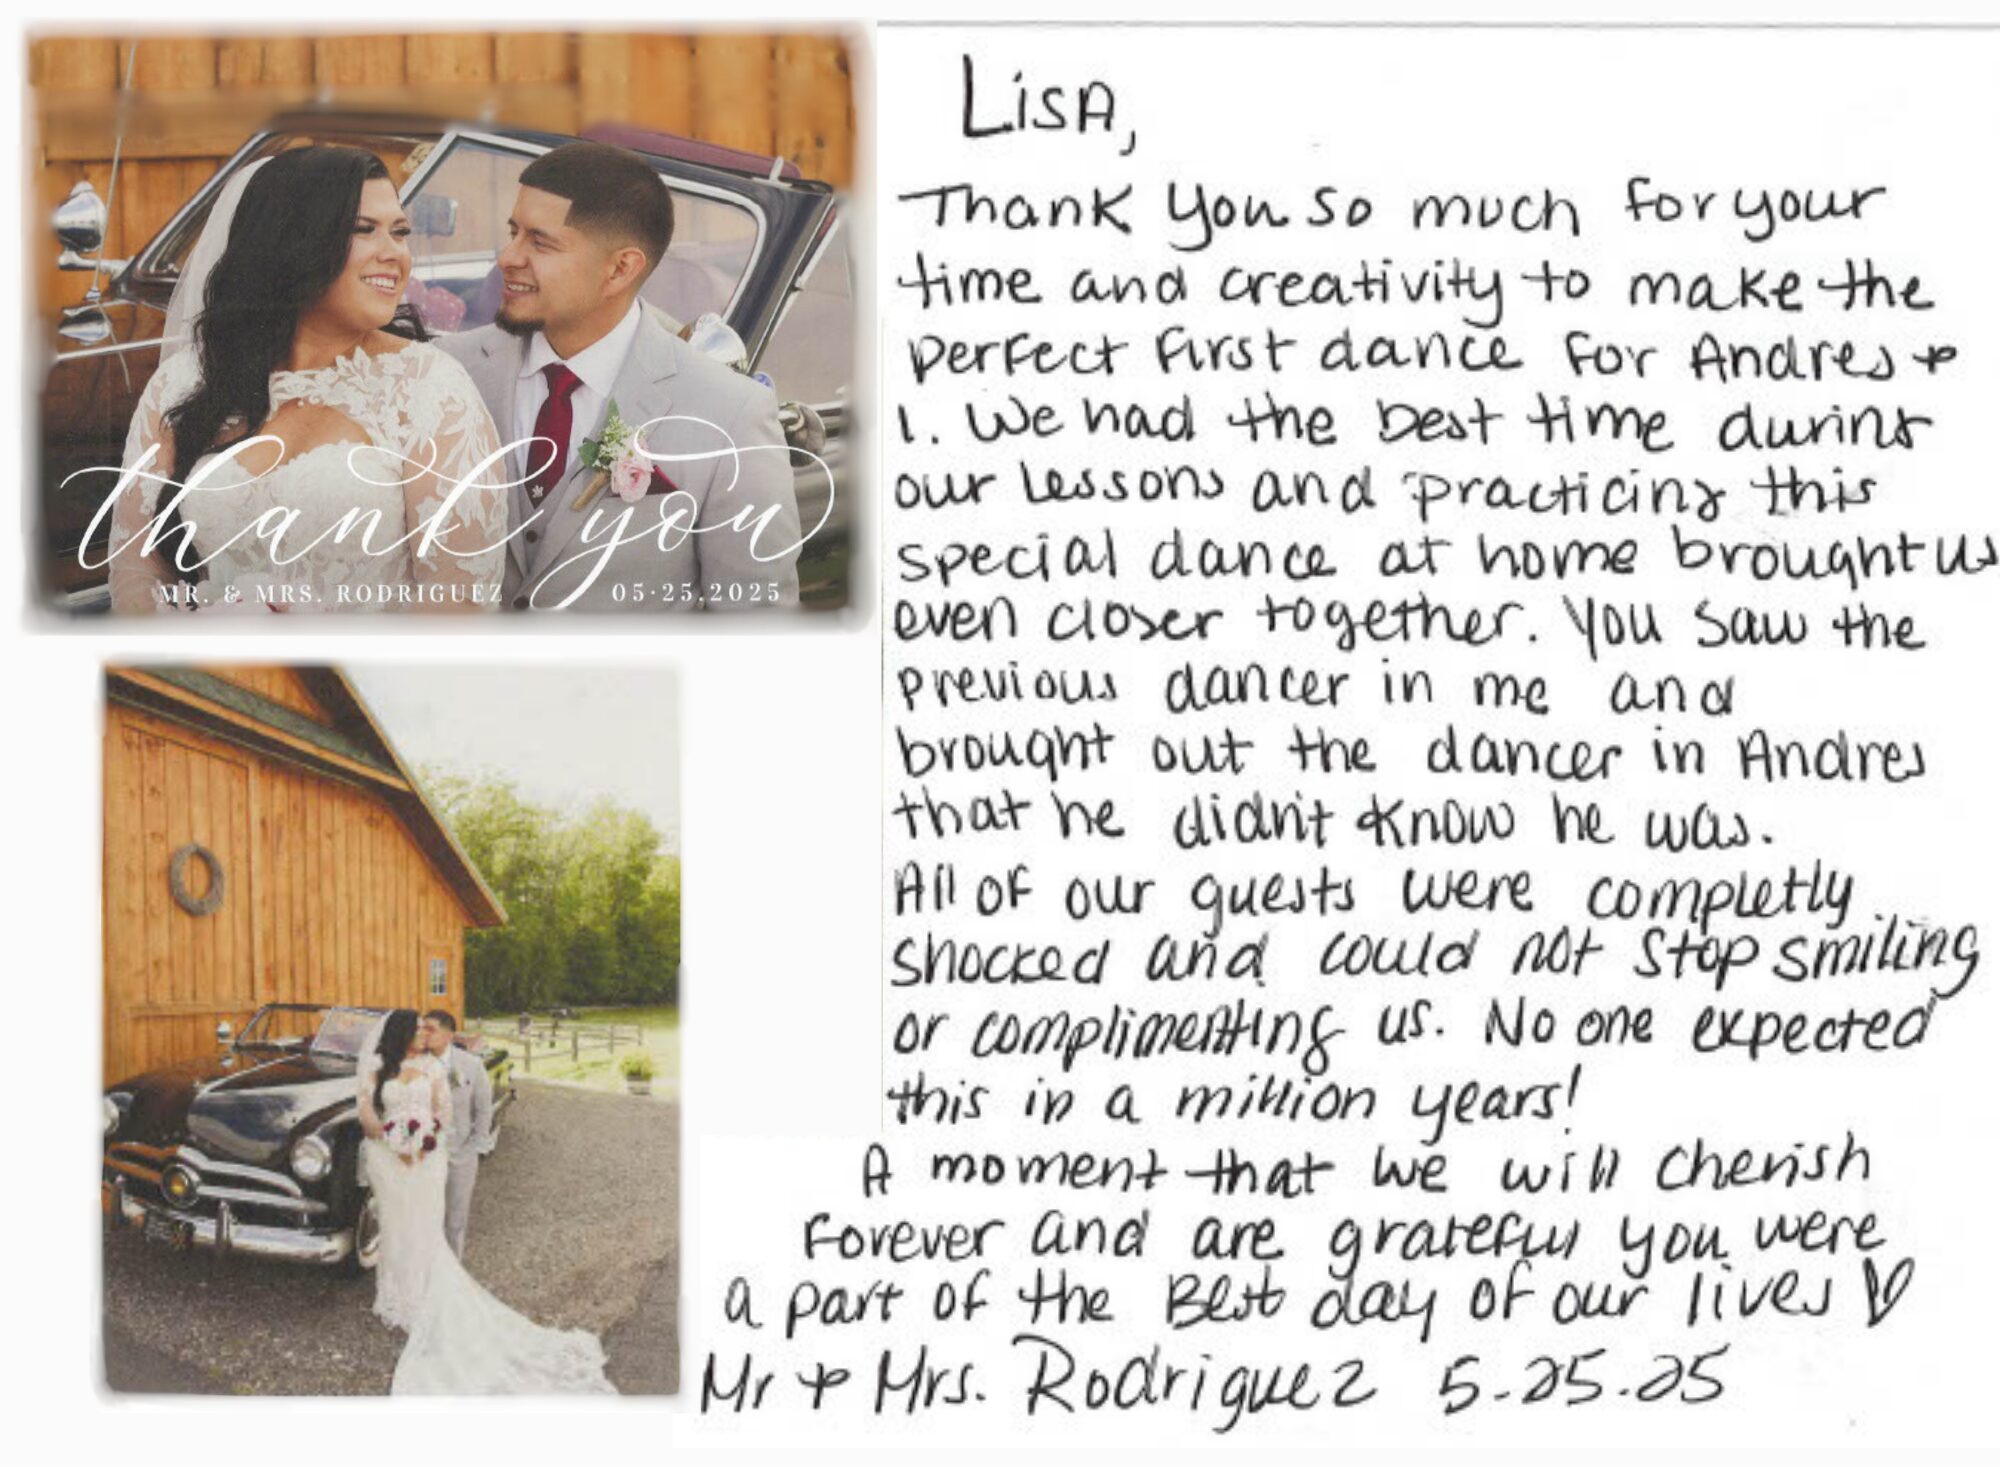 thank you
MR. & MRS. RODRIGUEZ 05·25.2025
Lisa,
Thank you so much for your
time and creativity to make the
perfect first dance for Andres &
I. We had the best time during
our lessons and practicing this
special dance at home brought us
even closer together. You saw the
previous dancer in me and
brought out the dancer in Andres
that he didn't know he was.
All of our guests were completly
shocked and could not stop smiling
or complimenting us. No one expected
this in a million years!
A moment that we will cherish
forever and are grateful you were
a part of the Best day of our lives ♡
Mr & Mrs. Rodriguez 5-25-25